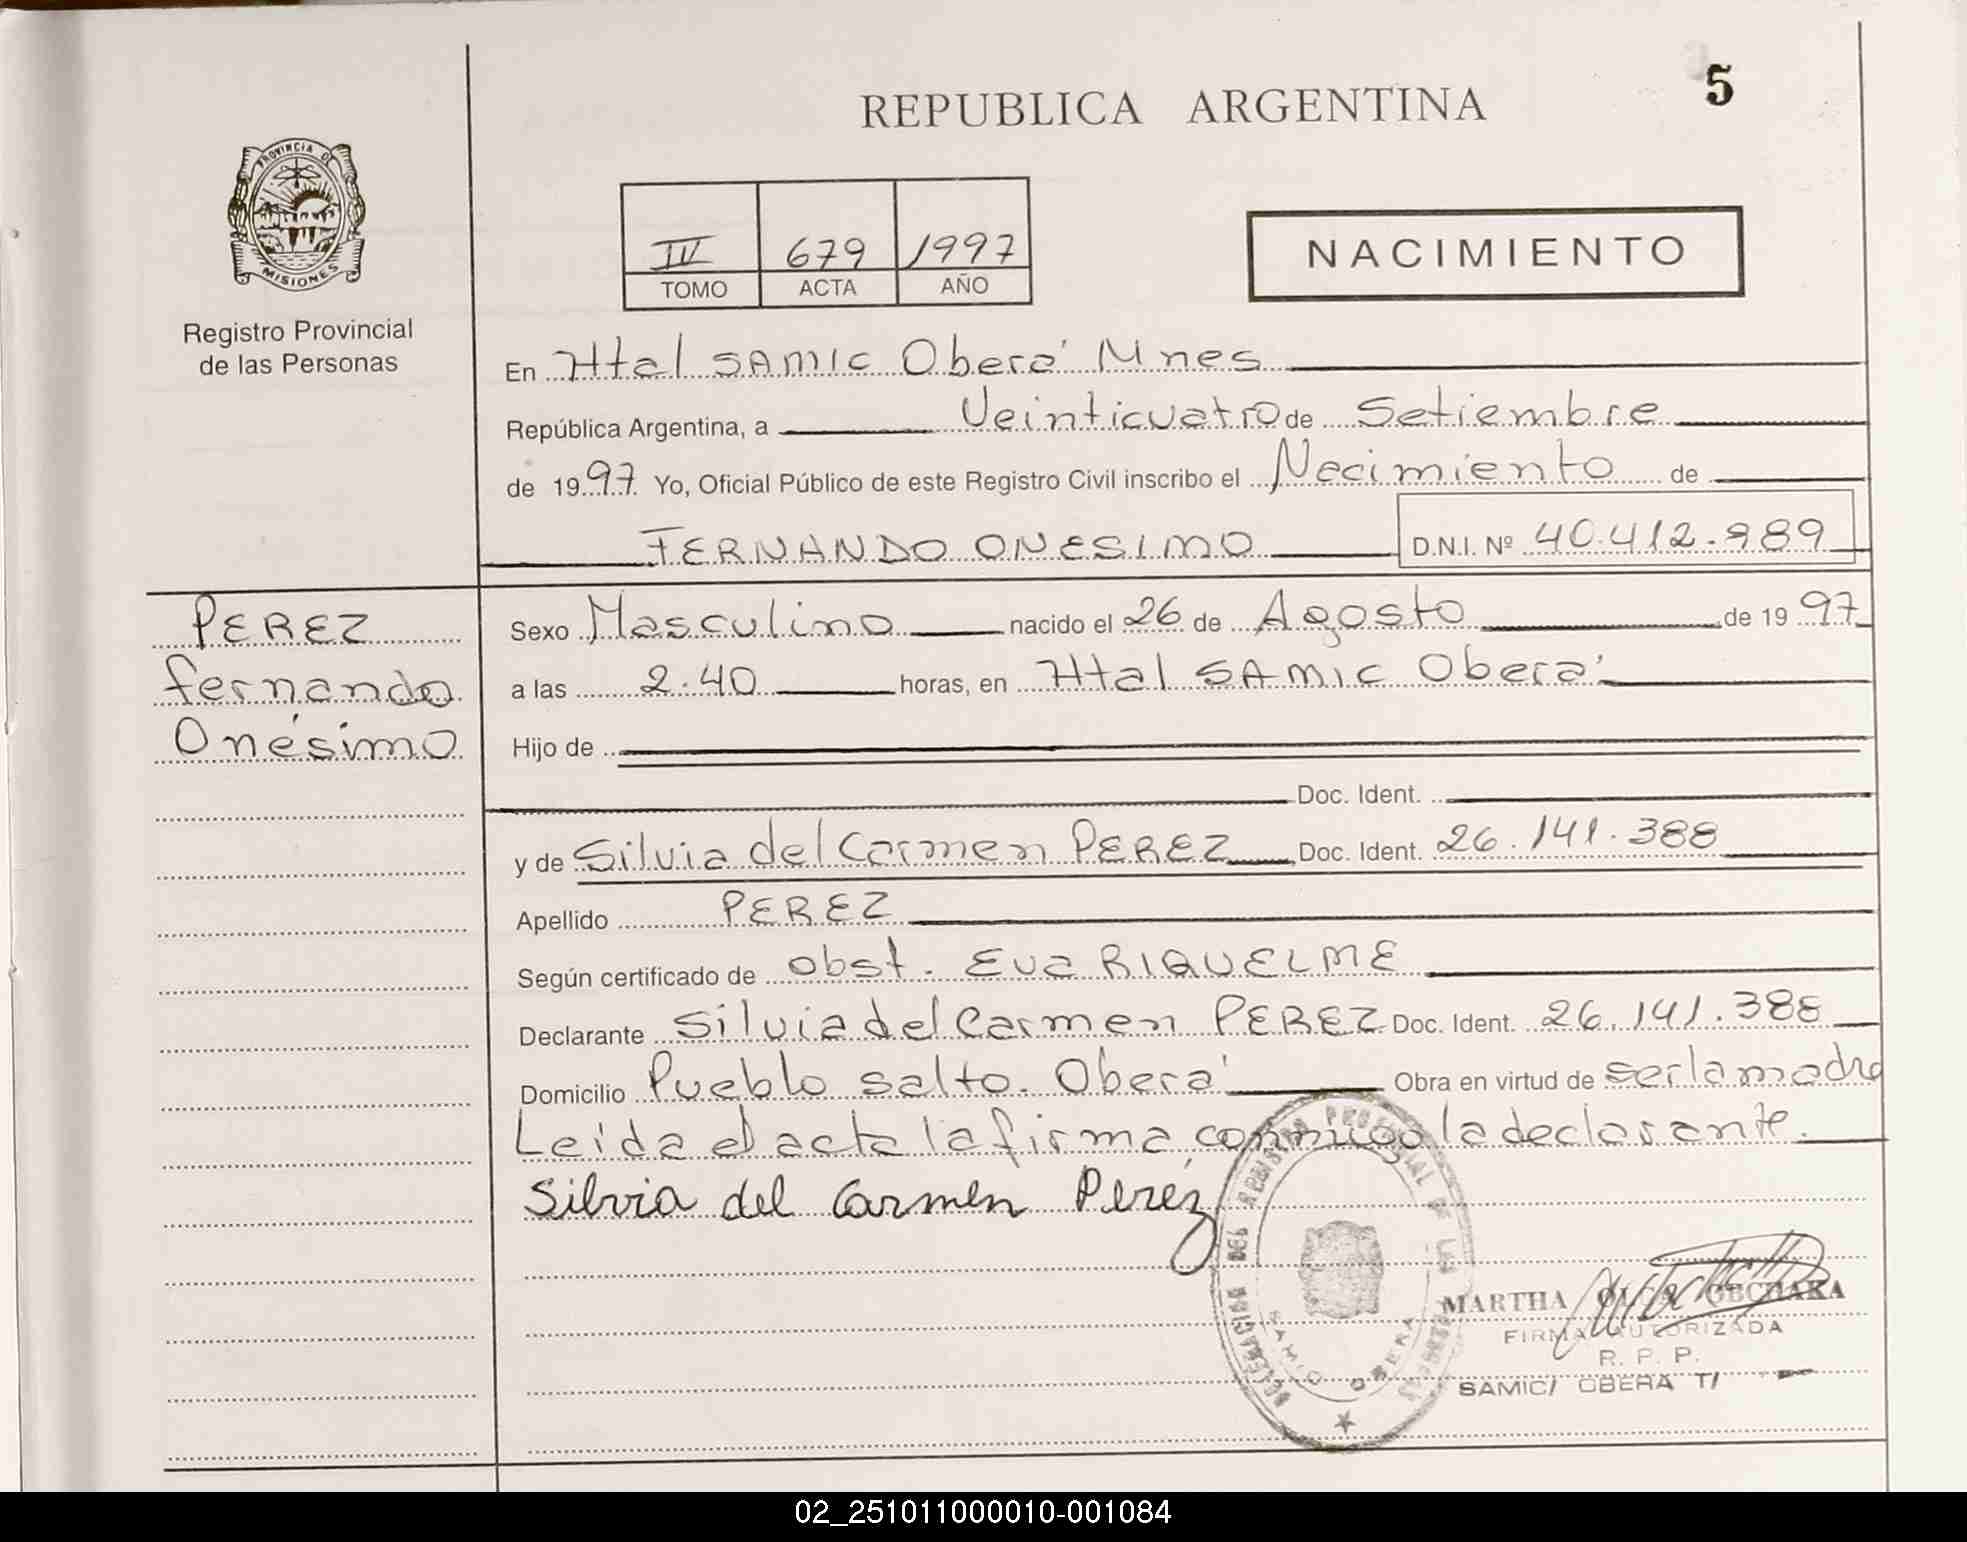 REPUBLICA ARGENTINA
5
PROVINCIA DE
MISIONES
Registro Provincial
de las Personas
IV 679 1997
TOMO ACTA AÑO
NACIMIENTO
En Htal SAMIC Oberá Mnes
República Argentina, a Veinticuatro de Setiembre
de 1997 Yo, Oficial Público de este Registro Civil inscribo el Nacimiento de
FERNANDO ONESIMO D.N.I. Nº 40.412.989
PEREZ
Fernando
Onésimo
Sexo Masculino nacido el 26 de Agosto de 1997
a las 2.40 horas, en Htal SAMIC Oberá
Hijo de
Doc. Ident.
y de Silvia del Carmen PEREZ Doc. Ident. 26.141.388
Apellido PEREZ
Según certificado de obst. Eva RIQUELME
Declarante Silvia del Carmen PEREZ Doc. Ident. 26.141.388
Domicilio Pueblo Salto. Oberá Obra en virtud de ser la madre
Leída el acta la firma, conmigo la declarante.
Silvia del Carmen Perez
SAMIC OBERA
MARTHA
FIRMA AUTORIZADA
R. P. P.
SAMIC/ OBERA
02_251011000010-001084